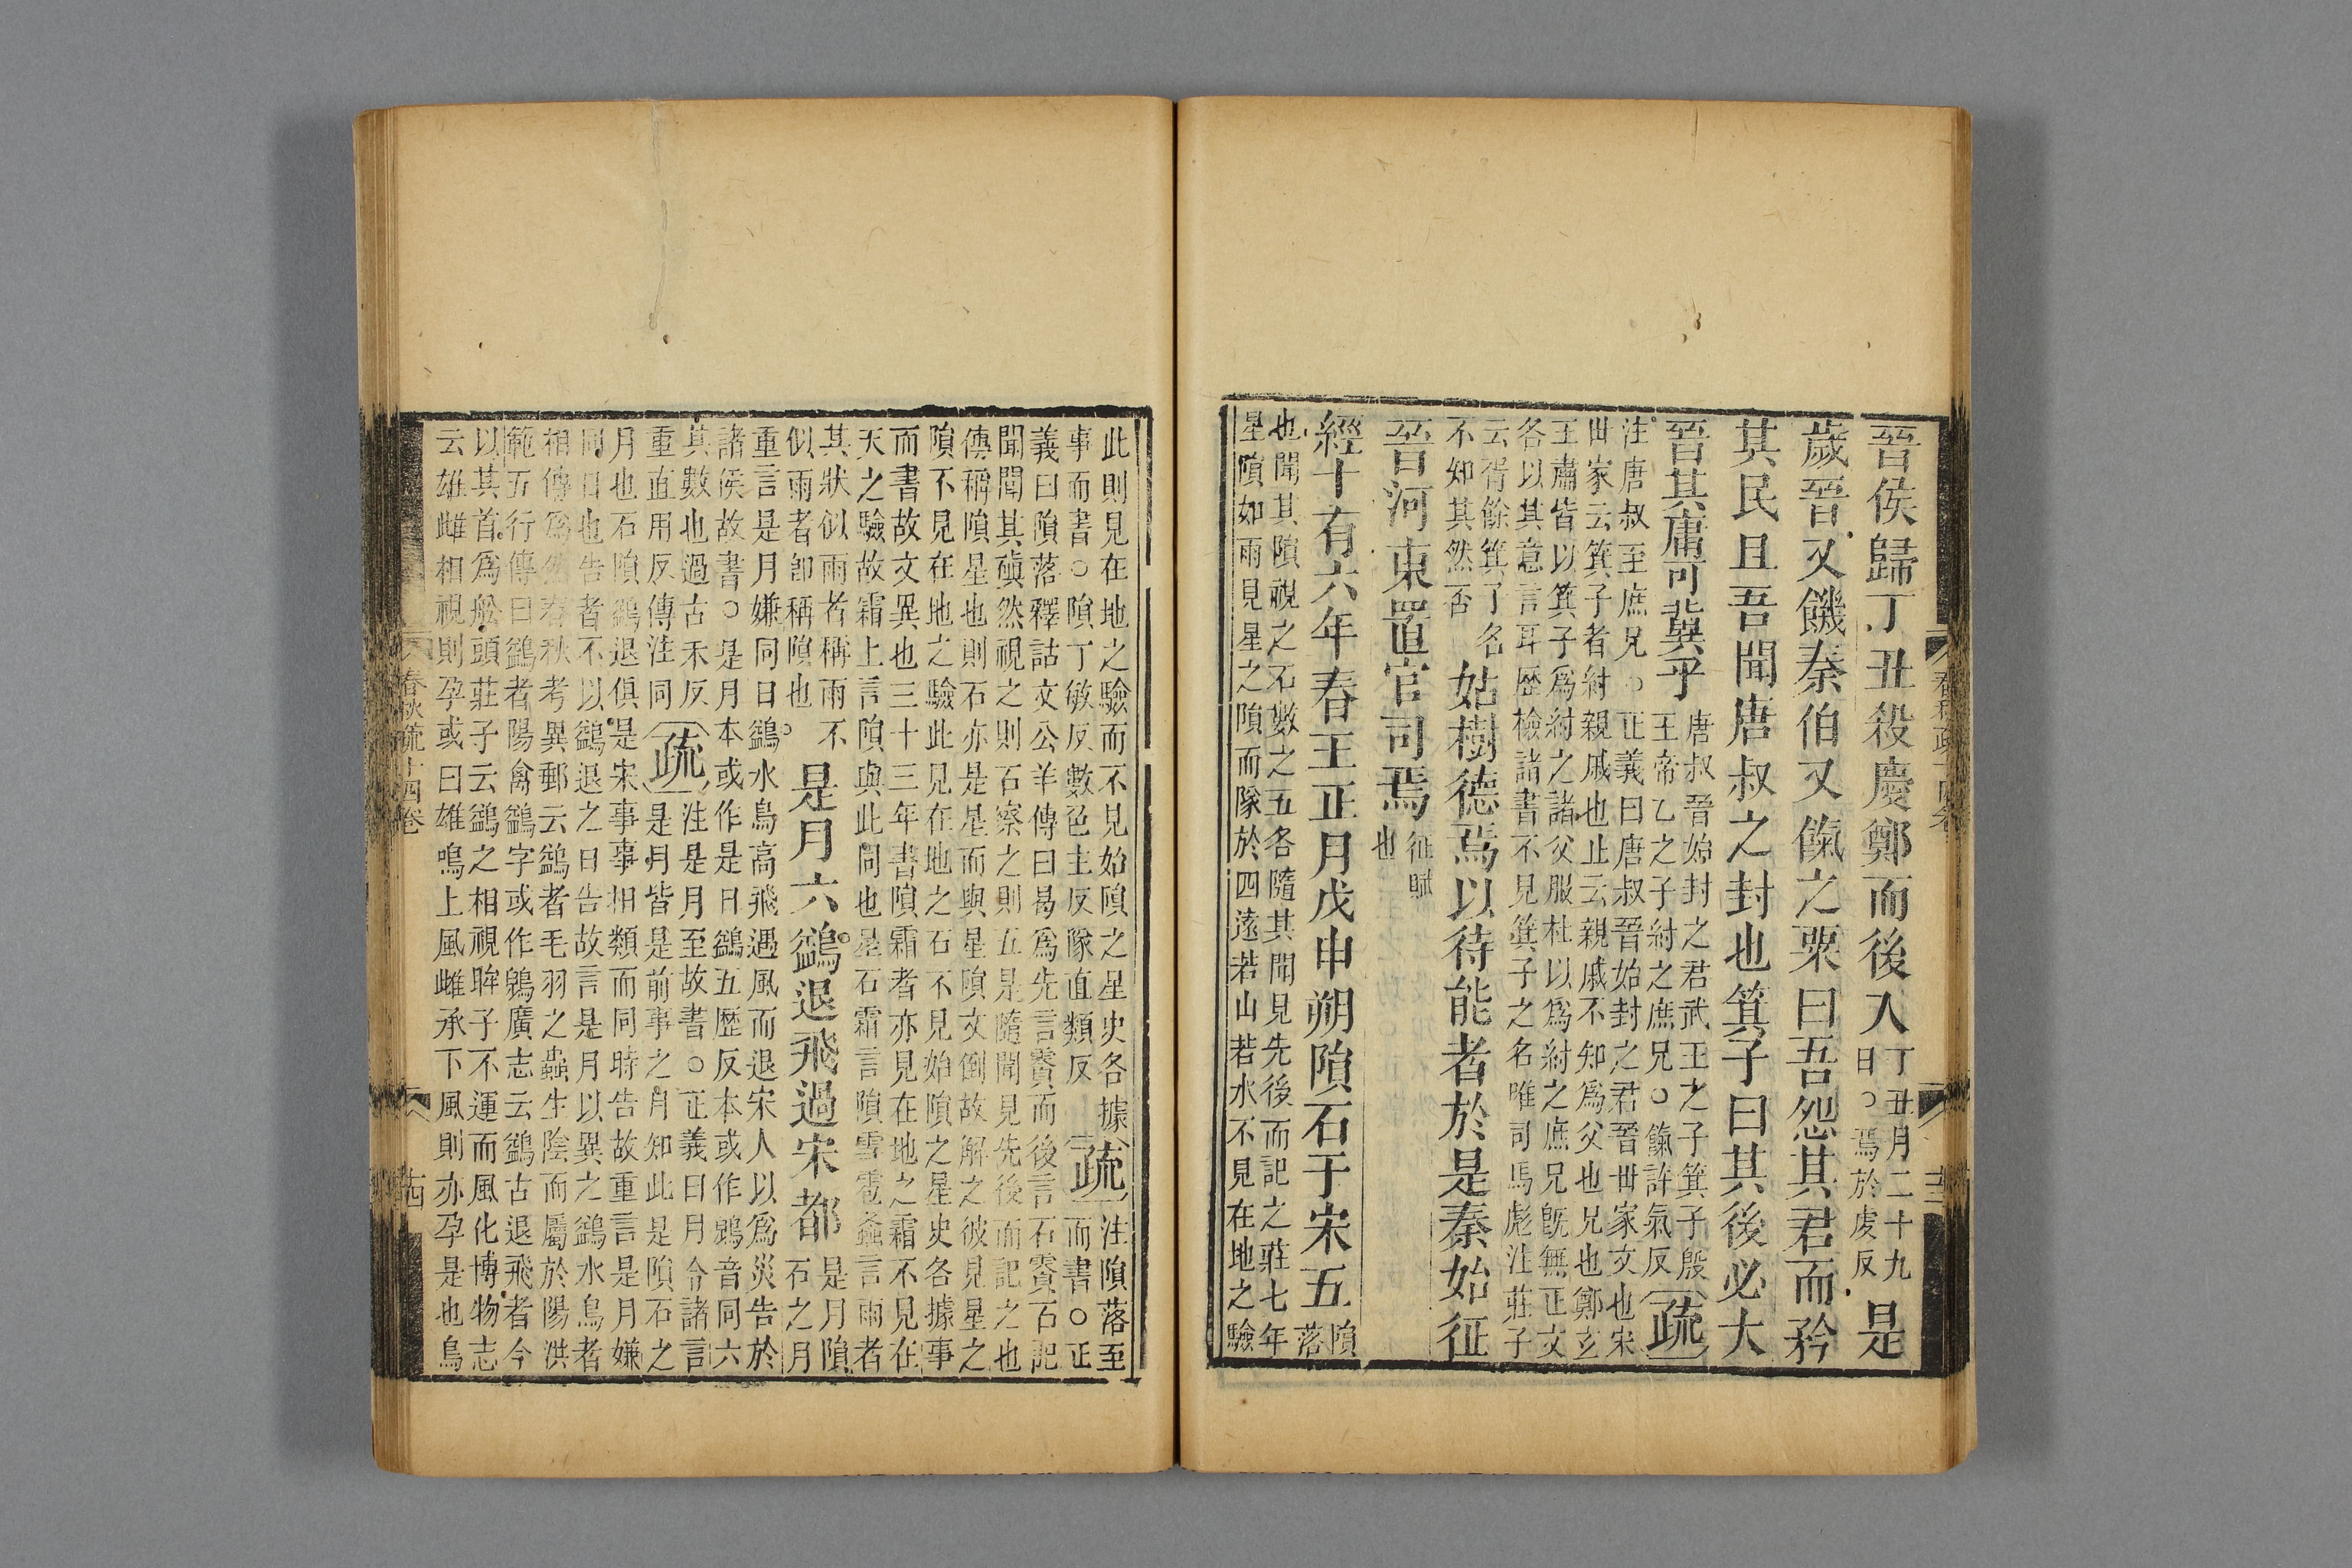 晉侯歸丁丑殺慶鄭而後入丁丑月二十九日○焉於虔反是
歲晉又饑秦伯又餼之粟曰吾怨其君而矜
其民且吾聞唐叔之封也箕子曰其後必大
晉其庸可冀乎唐叔晉始封之君武王之子箕子殷王帝乙之子紂之庶兄○餼許氣反疏
注唐叔至庶兄○正義曰唐叔晉始封之君晉世家文也宋
世家云箕子者紂親戚也止云親戚不知爲父也兄也鄭玄
王肅皆以箕子爲紂之諸父服杜以爲紂之庶兄旣無正文
各以其意言耳歷檢諸書不見箕子之名唯司馬彪注莊子
云胥餘箕子名不知其然否姑樹德焉以待能者於是秦始征
晉河東置官司焉征賦也
經十有六年春王正月戊申朔隕石于宋五隕落
也聞其隕視之石數之五各隨其聞見先後而記之莊七年
星隕如雨見星之隕而隊於四遠若山若水不見在地之驗
此則見在地之驗而不見始隕之星史各據
事而書○隕丁敏反數色主反隊直類反疏注隕落至而書○正
義曰隕落釋詁文公羊傳曰曷爲先言霣而後言石霣石記
聞聞其磌然視之則石察之則五是隨聞見先後而記之也
傳稱隕星也則石亦是星而與星隕文倒故解之彼見星之
隕不見在地之驗此見在地之石不見始隕之星史各據事
而書故文異也三十三年書隕霜者亦見在地之霜不見在
天之驗故霜上言隕與此同也星石霜言隕雪雹螽言雨者
其狀似雨者稱雨不似雨者卽稱隕也是月六鷁退飛過宋都是月隕石之月
重言是月嫌同日鷁水鳥高飛遇風而退宋人以爲災告於
諸侯故書○是月本或作是日鷁五歷反本或作鶂音同六
其數也過古禾反重直用反傳注同疏注是月至故書○正義曰月令諸言
是月皆是前事之月知此是隕石之
月也石隕鷁退俱是宋事事相類而同時告故重言是月嫌
同日也告者不以鷁退之日告故言是月以異之鷁水鳥者
相傳爲然春秋考異郵云鷁者毛羽之蟲生陰而屬於陽洪
範五行傳曰鷁者陽禽鷁字或作鶂廣志云鷁古退飛者今
以其首爲舩頭莊子云鷁之相視眸子不運而風化博物志
云雄雌相視則孕或曰雄鳴上風雌承下風則亦孕是也鳥
春秋疏十四卷